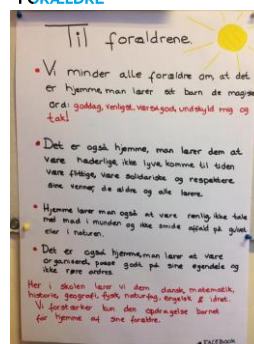 FORÆLDRE
Til forældrene.
• Vi minder alle forældre om, at det
er hjemme, man lærer sit barn de magiske
ord: goddag, venligst, værsågod, undskyld mig og
tak!
• Det er også hjemme, man lærer dem at
være hæderlige, ikke lyve, komme til tiden
være flittige, være solidariske og respektere
sine venner, de ældre og alle lærere.
• Hjemme lærer man også at være renlig, ikke tale
med mad i munden og ikke smide affald på gulvet
eller i naturen.
• Det er også hjemme, man lærer at være
organiseret, passe godt på sine egendele og
ikke røre andres.
Her i skolen lærer vi dem dansk, matematik,
historie, geografi, fysik, naturfag, engelsk & idræt.
Vi forstærker kun den opdragelse barnet
får hjemme af sine forældre.
FACEBOOK